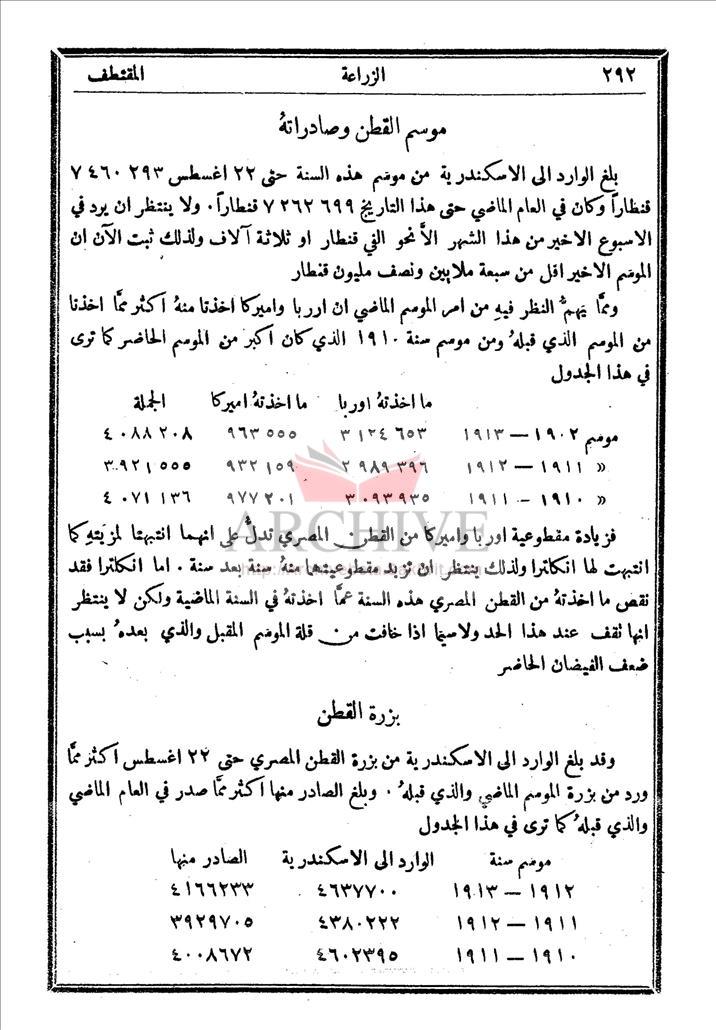 ٢٩٢ الزراعة المقتطف
موسم القطن وصادراتهُ
بلغ الوارد الى الاسكندرية من موسم هذه السنة حتى ٢٢ اغسطس ٢٩٣ ٤٦٠ ٧
قنطاراً وكان في العام الماضي حتى هذا التاريخ ٦٩٩ ٢٦٢ ٧ قنطاراً. ولا ينتظر ان يرد في
الاسبوع الاخير من هذا الشهر الاَّ نحو الفي قنطار او ثلاثة آلاف ولذلك ثبت الآن ان
الموسم الاخير اقل من سبعة ملايين ونصف مليون قنطار
وممَّا يهمُّ النظر فيهِ من امر الموسم الماضي ان اربا واميركا اخذتا منهُ اكثر ممَّا اخذتا
من الموسم الذي قبلهُ ومن موسم سنة ١٩١٠ الذي كان اكبر من الموسم الحاضر كما ترى
في هذا الجدول
ما اخذتهُ اوربا ما اخذتهُ اميركا الجملة
موسم ١٩٠٢ — ١٩١٣ ٦٥٣ ١٢٤ ٣ ٥٥٥ ٩٦٣ ٢٠٨ ٠٨٨ ٤
« ١٩١١ — ١٩١٢ ٣٩٦ ٩٨٩ ٢ ١٥٩ ٩٣٢ ٥٥٥ ٩٢١ ٣
« ١٩١٠ — ١٩١١ ٩٣٥ ٠٩٣ ٣ ٢٠١ ٩٧٧ ١٣٦ ٠٧١ ٤
ARCHIVE
فزيادة مقطوعية اوربا واميركا من القطن المصري تدلُّ على انهما انتبهتا لمزيتهِ كما
انتبهت لها انكلترا ولذلك ينتظر ان تزيد مقطوعيتهما منهُ سنة بعد سنة . اما انكلترا فقد
نقص ما اخذتهُ من القطن المصري هذه السنة عمَّا اخذتهُ في السنة الماضية ولكن لا ينتظر
انها تقف عند هذا الحد ولاسيما اذا خافت من قلة الموسم المقبل والذي بعدهُ بسبب
ضعف الفيضان الحاضر
بزرة القطن
وقد بلغ الوارد الى الاسكندرية من بزرة القطن المصري حتى ٢٢ اغسطس اكثر ممَّا
ورد من بزرة الموسم الماضي والذي قبلهُ . وبلغ الصادر منها اكثر ممَّا صدر في العام الماضي
والذي قبلهُ كما ترى في هذا الجدول
موسم سنة الوارد الى الاسكندرية الصادر منها
١٩١٢ — ١٩١٣ ٤٦٣٧٧٠٠ ٤١٦٦٢٣٣
١٩١١ — ١٩١٢ ٤٣٨٠٢٢٢ ٣٩٢٩٧٠٥
١٩١٠ — ١٩١١ ٤٦٠٢٣٩٥ ٤٠٠٨٦٧٢